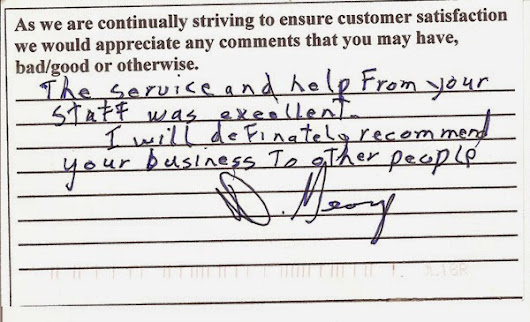 As we are continually striving to ensure customer satisfaction
we would appreciate any comments that you may have,
bad/good or otherwise.
The service and help From your
staff was excellent.
I will definately recommend
your business To other people